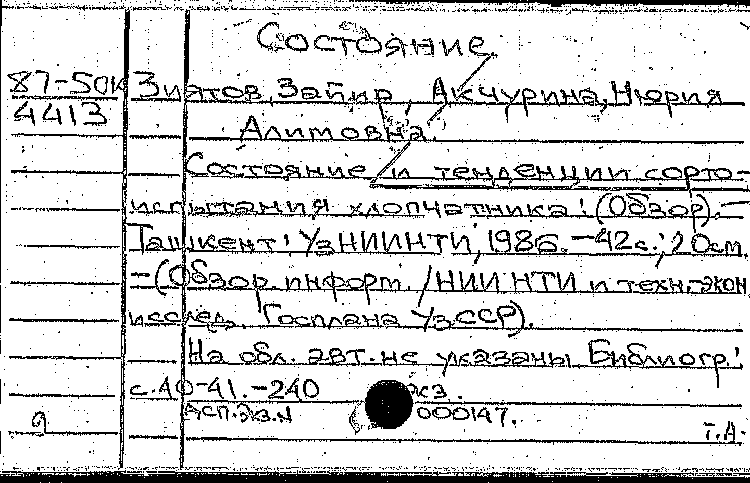 Состояние
87-50К Зиятов, Запир, Акчурина, Нюрия
4413
Алимовна.
Состояние и тенденции сорто-
испытания хлопчатника: (Обзор). –
Ташкент: УзНИИНТИ, 1986. – 42с.; 20см.
– (Обзор. информ. / НИИНТИ и техн.-экон
исслед. Госплана УзССР).
На обл. авт. не указаны Библиогр:
с. 40-41. – 240 экз.
Деп. экз. N 000147.
Т.А.